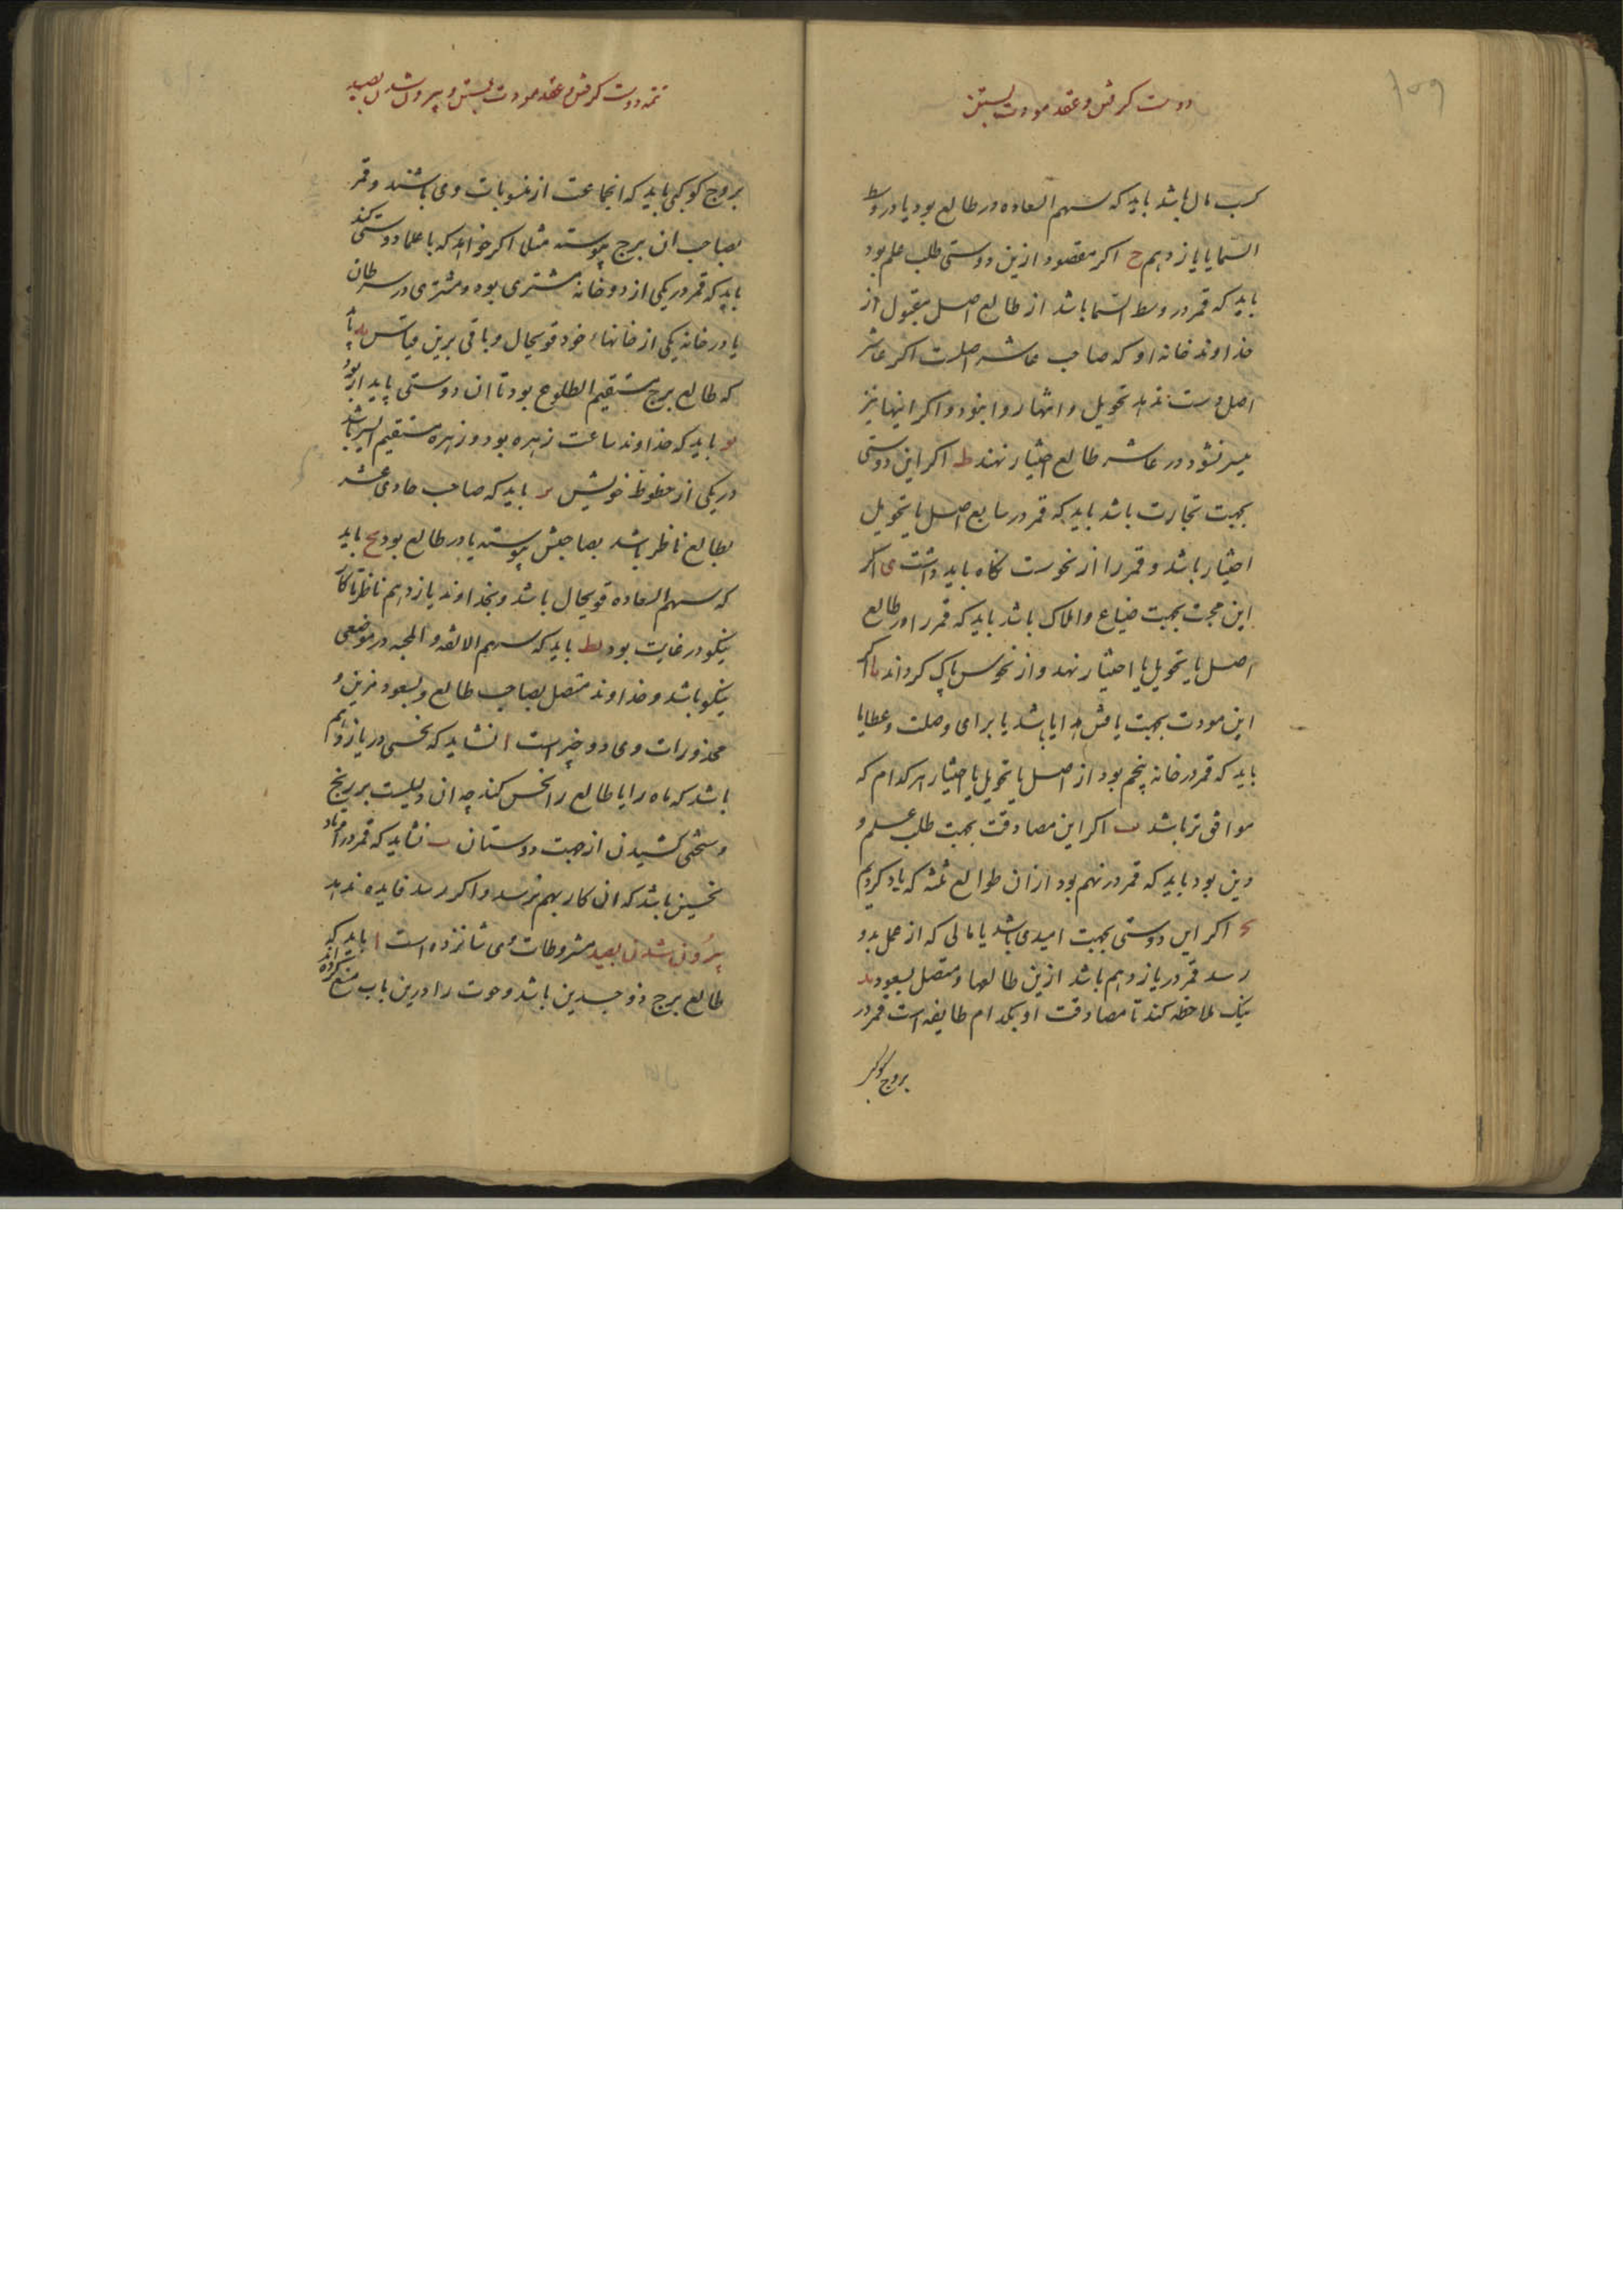 ۱۵۹
دوست گرفتن و عقد مودت بستن
کسب مال باشد باید که سهم السعاده در طالع بود یا در وسط
السما یا یازدهم ح اکر مقصود ازین دوستی طلب علم بود
باید که قمر در وسط السما باشد از طالع اصل مقبول از
خداوند خانه او که صاحب عاشر اصلست اکر عاشر
اصل دست ندهد تحویل و انتها روا بود و اکر اینها نیز
میسر نشود در عاشر طالع اختیار نهند ط اکر این دوستی
بجهت تجارت باشد باید که قمر در سابع اصل یا تحویل
اختیار باشد و قمر را از نحوست نکاه باید داشت ی اکر
این محبت بجهت ضیاع و املاک باشد باید که قمر را در طالع
اصل یا تحویل یا اختیار نهد و از نحوس پاک کرداند یا اکر
این مودت بجهت یافتن هدایا باشد یا برای وصلت و عطایا
باید که قمر در خانه پنجم بود از اصل یا تحویل یا اختیار هر کدام که
موافق تر باشد یب اکر این مصادقت بجهت طلب علم و
دین بود باید که قمر در نهم بود ازان طوالع ثلثه که یاد کردیم
یج اکر این دوستی بجهت امیدی باشد یا مالی که از عمل بدو
رسد قمر در یازدهم باشد ازین طالعها و متصل بسعود ید
نیک ملاحظه کند تا مصادقت او بکدام طایفه است قمر در
بروج کوکبی
تتمه دوست گرفتن و عقد مودت بستن و بیرون شدن بصید
بروج کوکبی باید که انجماعت از منسوبات وی باشند و قمر
بصاحب ان برج پیوسته مثلا اکر خواهد که با علما دوستی کند
باید که قمر در یکی از دو خانه مشتری بود و مشتری در سرطان
یا در خانه یکی از خانهاء خود قویحال و باقی برین قیاس یه باید
که طالع برج مستقیم الطلوع بود تا ان دوستی پایدار بود
یو باید که خداوند ساعت زهره بود و زهره مستقیم السیر باشد
در یکی از حظوظ خویش یز باید که صاحب حادی عشر
بطالع ناظر باشد بصاحبش پیوسته یا در طالع بود یح باید
که سهم السعاده قویحال باشد و بخداوند یازدهم ناظر تا کار
نیکو در غایت بود یط باید که سهم الالفه و المحبه در موضعی
نیکو باشد و خداوند متصل بصاحب طالع و بسعود مزین و
محذورات وی دو چیز است ا نشاید که نحسی در یازدهم
باشد که ماه را یا طالع را نحس کند چه ان دلیلست بر رنج
و سختی کشیدن از جهت دوستان ب نشاید که قمر در اوتاد
نحسین باشد که ان کار بهم نرسد و اکر رسد فایده ندهد
بیرون شدن بصید مشروطات وی شانزده است ا باید که
طالع برج ذو جسدین باشد و حوت را درین باب منع کرده اند